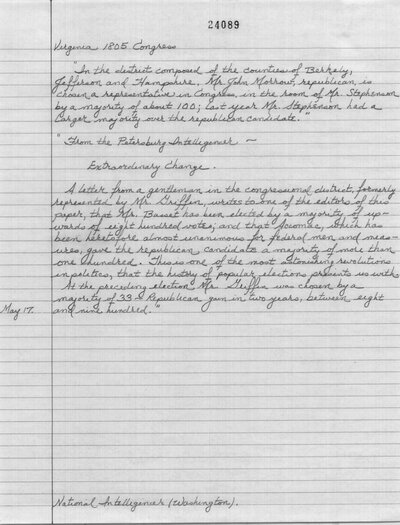 24089
Virginia 1805 Congress
"In the district composed of the counties of Berkely,
Jefferson and Hampshire, Mr. John Morrow, republican, is
chosen a representative in Congress, in the room of Mr. Stephenson
by a majority of about 100; last year Mr. Stephenson had a
larger majority over the republican candidate."
"From the Petersburg Intelligencer —
Extraordinary Change.
A letter from a gentleman in the congressional district, formerly
represented by Mr. Griffin, writes to one of the editors of this
paper, that Mr. Basset has been elected by a majority of up-
wards of eight hundred votes; and that Accomac, which has
been heretofore almost unanimous for federal men and meas-
ures, gave the republican candidate a majority of more than
one hundred. This is one of the most astonishing revolutions
in politics, that the history of popular elections presents us with.
At the preceding election Mr. Griffin was chosen by a
majority of 33 - Republican gain in two years, between eight
May 17. and nine hundred."
National Intelligencer (Washington).